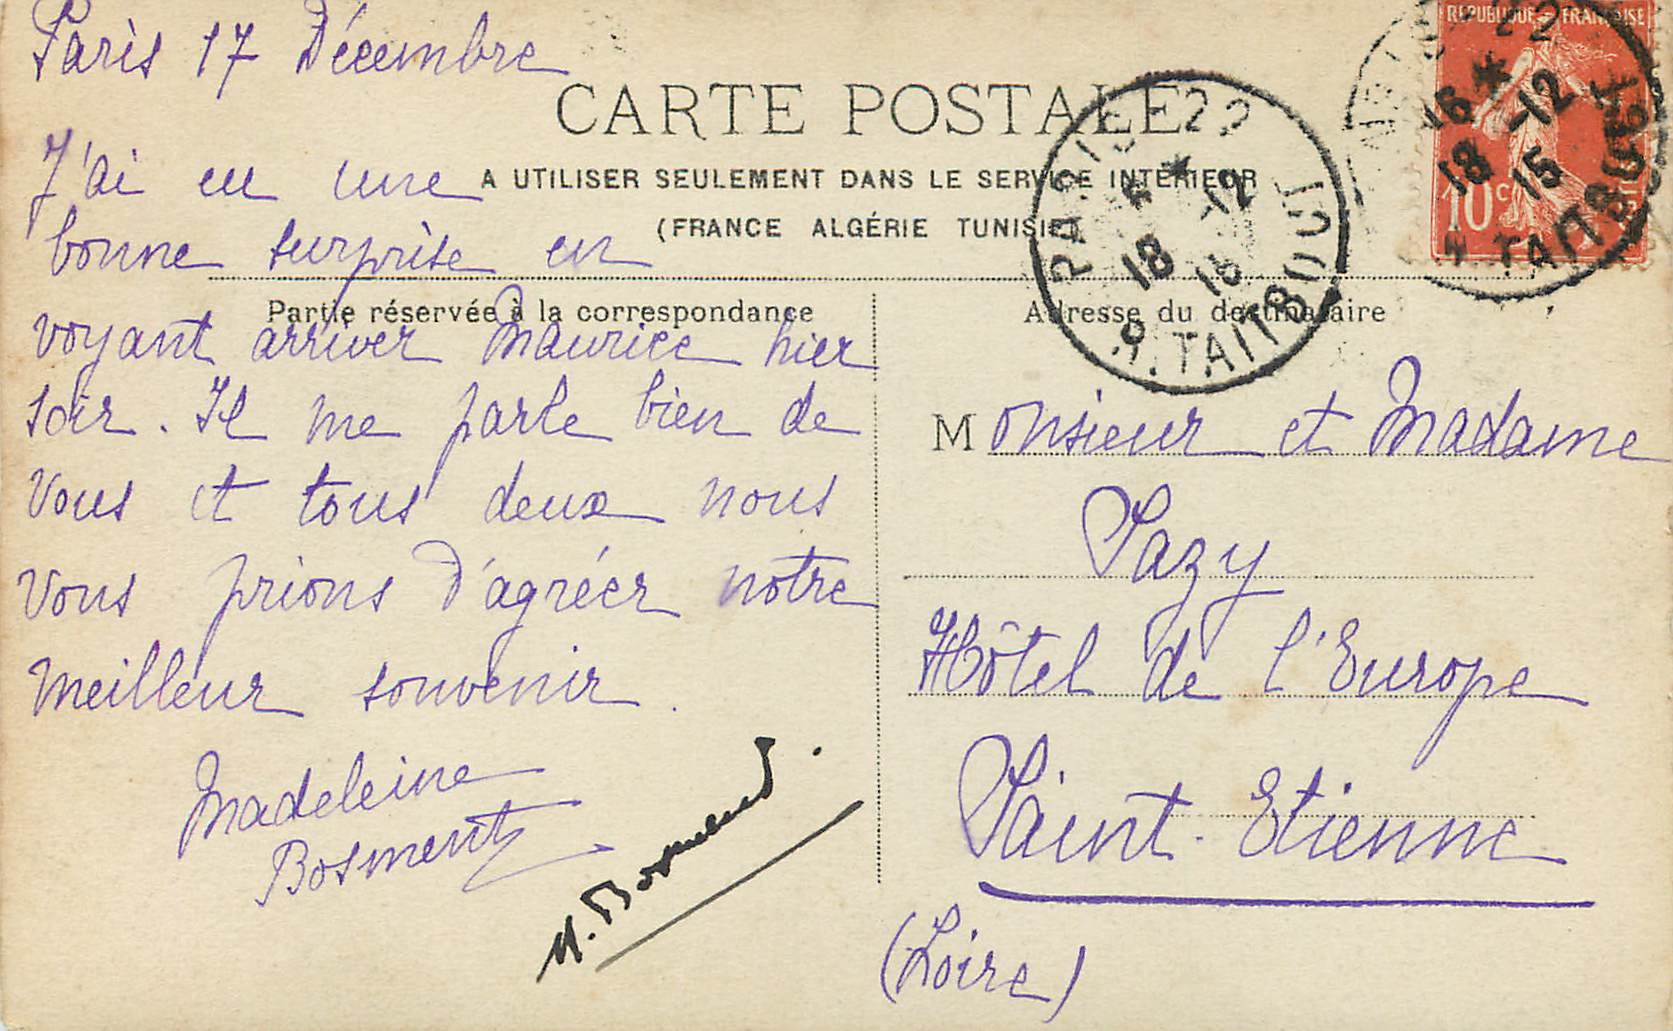 Paris 17 Décembre
CARTE POSTALE
A UTILISER SEULEMENT DANS LE SERVICE INTÉRIEUR
(FRANCE ALGÉRIE TUNISIE
Partie réservée à la correspondance
J'ai eu une
bonne surprise en
voyant arriver Maurice hier
soir. Il me parle bien de
vous et tous deux nous
vous prions d'agréer notre
meilleur souvenir.
Madeleine
Bosment
M. Bosment.
REPUBLIQUE FRANÇAISE
10c
PARIS 22
* 18 -12 15
R. TAITBOUT
16 * -12
18 15
R. TAITBOUT
Adresse du destinataire
Monsieur et Madame
Sazy
Hôtel de l'Europe
Saint-Etienne
(Loire)